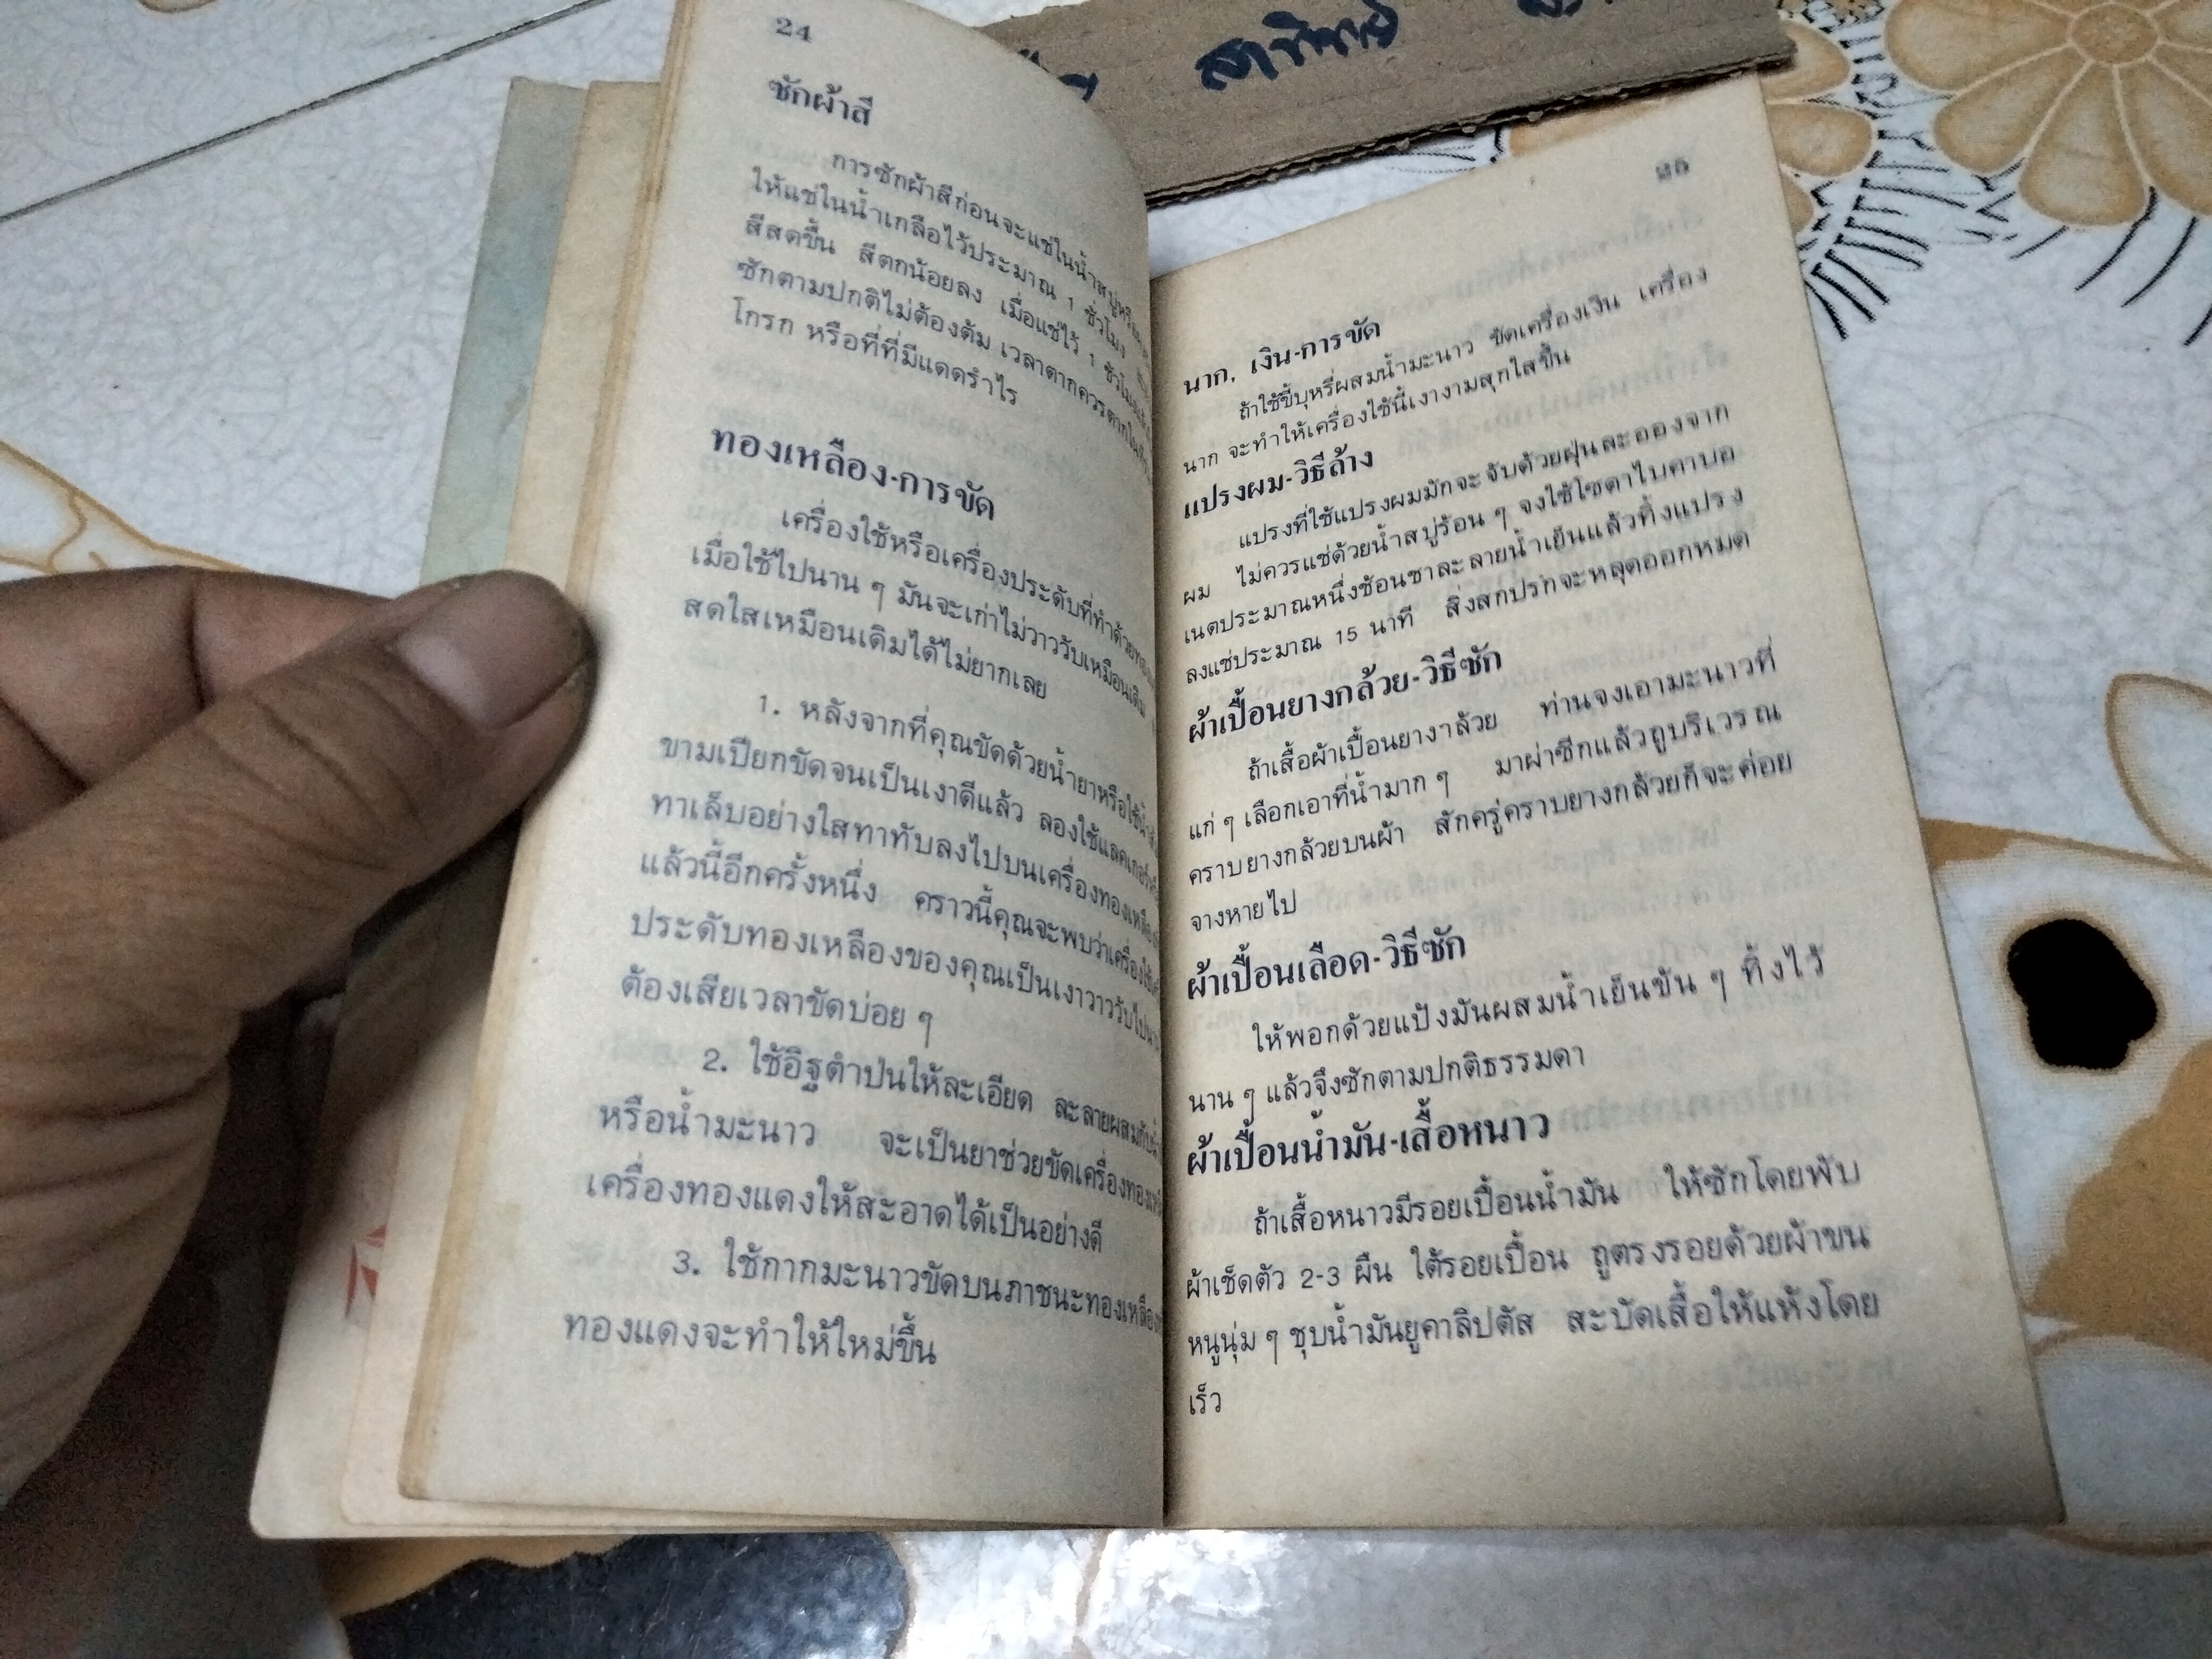 24
ซักผ้าสี
การซักผ้าสีก่อนจะแช่ในน้ำสบู่หรือ
ให้แช่ในน้ำเกลือไว้ประมาณ 1 ชั่วโมง
สีสดขึ้น สีตกน้อยลง เมื่อแช่ไว้ 1 ชั่วโมง
ซักตามปกติไม่ต้องต้ม เวลาตากควรตากใน
โกรก หรือที่ที่มีแดดรำไร
ทองเหลือง-การขัด
เครื่องใช้หรือเครื่องประดับที่ทำด้วย
เมื่อใช้ไปนาน ๆ มันจะเก่าไม่วาววับเหมือนเดิม
สดใสเหมือนเดิมได้ไม่ยากเลย
1. หลังจากที่คุณขัดด้วยน้ำยาหรือใช้
ขามเปียกขัดจนเป็นเงาดีแล้ว ลองใช้แลคเกอร์
ทาเล็บอย่างใสทาทับลงไปบนเครื่องทองเหลือง
แล้วนี้อีกครั้งหนึ่ง คราวนี้คุณจะพบว่าเครื่อง
ประดับทองเหลืองของคุณเป็นเงาวาววับไป
ต้องเสียเวลาขัดบ่อย ๆ
2. ใช้อิฐตำป่นให้ละเอียด ละลายผสมกับ
หรือน้ำมะนาว จะเป็นยาช่วยขัดเครื่อง
เครื่องทองแดงให้สะอาดได้เป็นอย่างดี
3. ใช้กากมะนาวขัดบนภาชนะทองเหลือง
ทองแดงจะทำให้ใหม่ขึ้น
นาก, เงิน-การขัด
ถ้าใช้ขี้บุหรี่ผสมน้ำมะนาว ขัดเครื่องเงิน เครื่อง
นาก จะทำให้เครื่องใช้นี้เงางามสุกใสขึ้น
แปรงผม-วิธีล้าง
แปรงที่ใช้แปรงผมมักจะจับด้วยฝุ่นละอองจาก
ผม ไม่ควรแช่ด้วยน้ำสบู่ร้อน ๆ จงใช้โซดาไบคาบอ
เนตประมาณหนึ่งช้อนชาละลายน้ำเย็นแล้วทิ้งแปรง
ลงแช่ประมาณ 15 นาที สิ่งสกปรกจะหลุดออกหมด
ผ้าเปื้อนยางกล้วย-วิธีซัก
ถ้าเสื้อผ้าเปื้อนยางาล้วย ท่านจงเอามะนาวที่
แก่ ๆ เลือกเอาที่น้ำมาก ๆ มาผ่าซีกแล้วถูบริเวรณ
คราบยางกล้วยบนผ้า สักครู่คราบยางกล้วยก็จะค่อย
จางหายไป
ผ้าเปื้อนเลือด-วิธีซัก
ให้พอกด้วยแป้งมันผสมน้ำเย็นขัน ๆ ทิ้งไว้
นาน ๆ แล้วจึงซักตามปกติธรรมดา
ผ้าเปื้อนน้ำมัน-เสื้อหนาว
ถ้าเสื้อหนาวมีรอยเปื้อนน้ำมัน ให้ซักโดยพับ
ผ้าเช็ดตัว 2-3 ผืน ใต้รอยเปื้อน ถูตรงรอยด้วยผ้าขน
หนูนุ่ม ๆ ชุบน้ำมันยูคาลิปตัส สะบัดเสื้อให้แห้งโดย
เร็ว